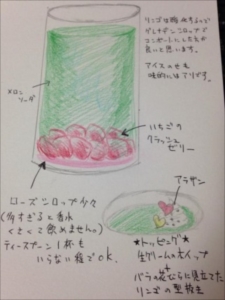 リンゴは酸化するので
グレナデンシロップで
コンポートにした方が
良いと思います。
アイスのせも
味的にはアリです。
メロン
ソーダ
いちごの
クラッシュ
ゼリー
ローズシロップ少々
(多すぎると香水
くさくて飲めません。)
ティースプーン1杯も
いらない程でOK.
アラザン
★トッピング★
生クリームorホイップ
バラの花びらに見立てた
リンゴの型抜き